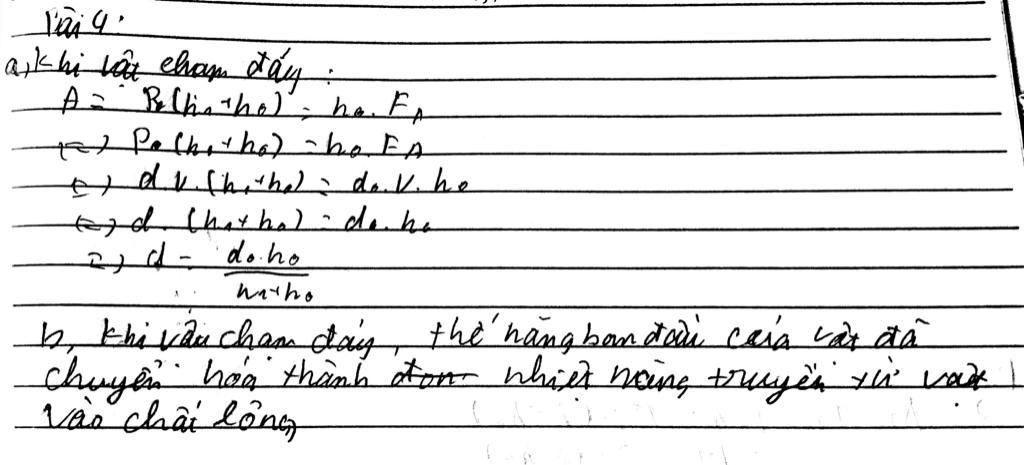 Bài 4:
a, Khi vật chạm đáy:
A = P.(h₁+h₀) = h₀.F_A
(=) P.(h₁+h₀) = h₀.F_A
(=) d.V.(h₁+h₀) = d₀.V.h₀
(=) d.(h₁+h₀) = d₀.h₀
=) d = d₀.h₀
h₁+h₀
b, Khi vật chạm đáy, thế năng ban đầu của vật đã
chuyển hóa thành nhiệt năng truyền từ vật
vào chất lỏng